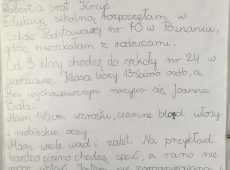 a brat Krzyś.
Edukację szkolną rozpoczęłam w
Szkole Podstawowej nr 70 w Poznaniu,
gdzie mieszkałam z rodzicami.
Od 3 klasy chodzę do szkoły nr 24 w
Warszawie. Klasa liczy osób, a
wychowawczyni nazywa się Joanna
Biała.
Mam 145cm wzrostu, ciemne blond włosy
i niebieskie oczy.
Mam wiele wad i zalet. Na przykład
bardzo późno chodzę spać, a rano nie
mogę wstać. Jestem